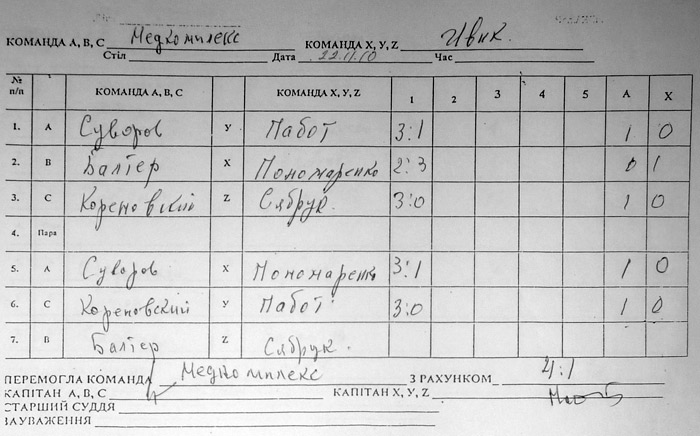 КОМАНДА А, В, С Медкомплекс КОМАНДА X, Y, Z Ивик.
Стіл Дата 22.11.10 Час
№ п/п КОМАНДА А, В, С КОМАНДА X, Y, Z 1 2 3 4 5 А X
1. А Суворов У Пабот 3:1 1 0
2. В Балтер X Пономаренко 2:3 0 1
3. С Кореновский Z Сябрук. 3:0 1 0
4. Пара
5. А Суворов X Пономаренко 3:1 1 0
6. С Кореновский У Пабот 3:0 1 0
7. В Балтер Z Сябрук.
ПЕРЕМОГЛА КОМАНДА Медкомплекс З РАХУНКОМ 4:1
КАПІТАН А, В, С КАПІТАН X, Y, Z
СТАРШИЙ СУДДЯ
ЗАУВАЖЕННЯ